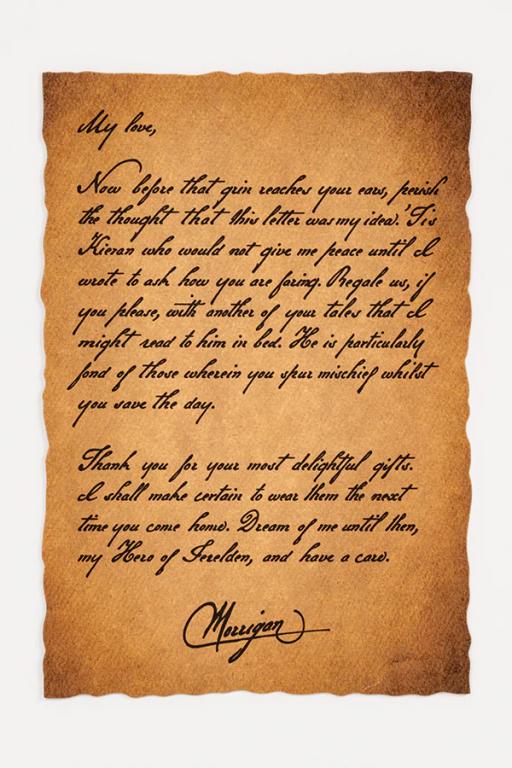 My love,
Now before that grin reaches your ears, perish
the thought that this letter was my idea. 'Tis
Kieran who would not give me peace until I
wrote to ask how you are faring. Regale us, if
you please, with another of your tales that I
might read to him in bed. He is particularly
fond of those wherein you spur mischief whilst
you save the day.
Thank you for your most delightful gifts.
I shall make certain to wear them the next
time you come home. Dream of me until then,
my Hero of Ferelden, and have a care.
Morrigan